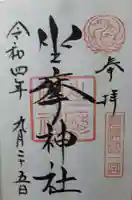 奉拝
坐摩神社
令和四年九月二十五日